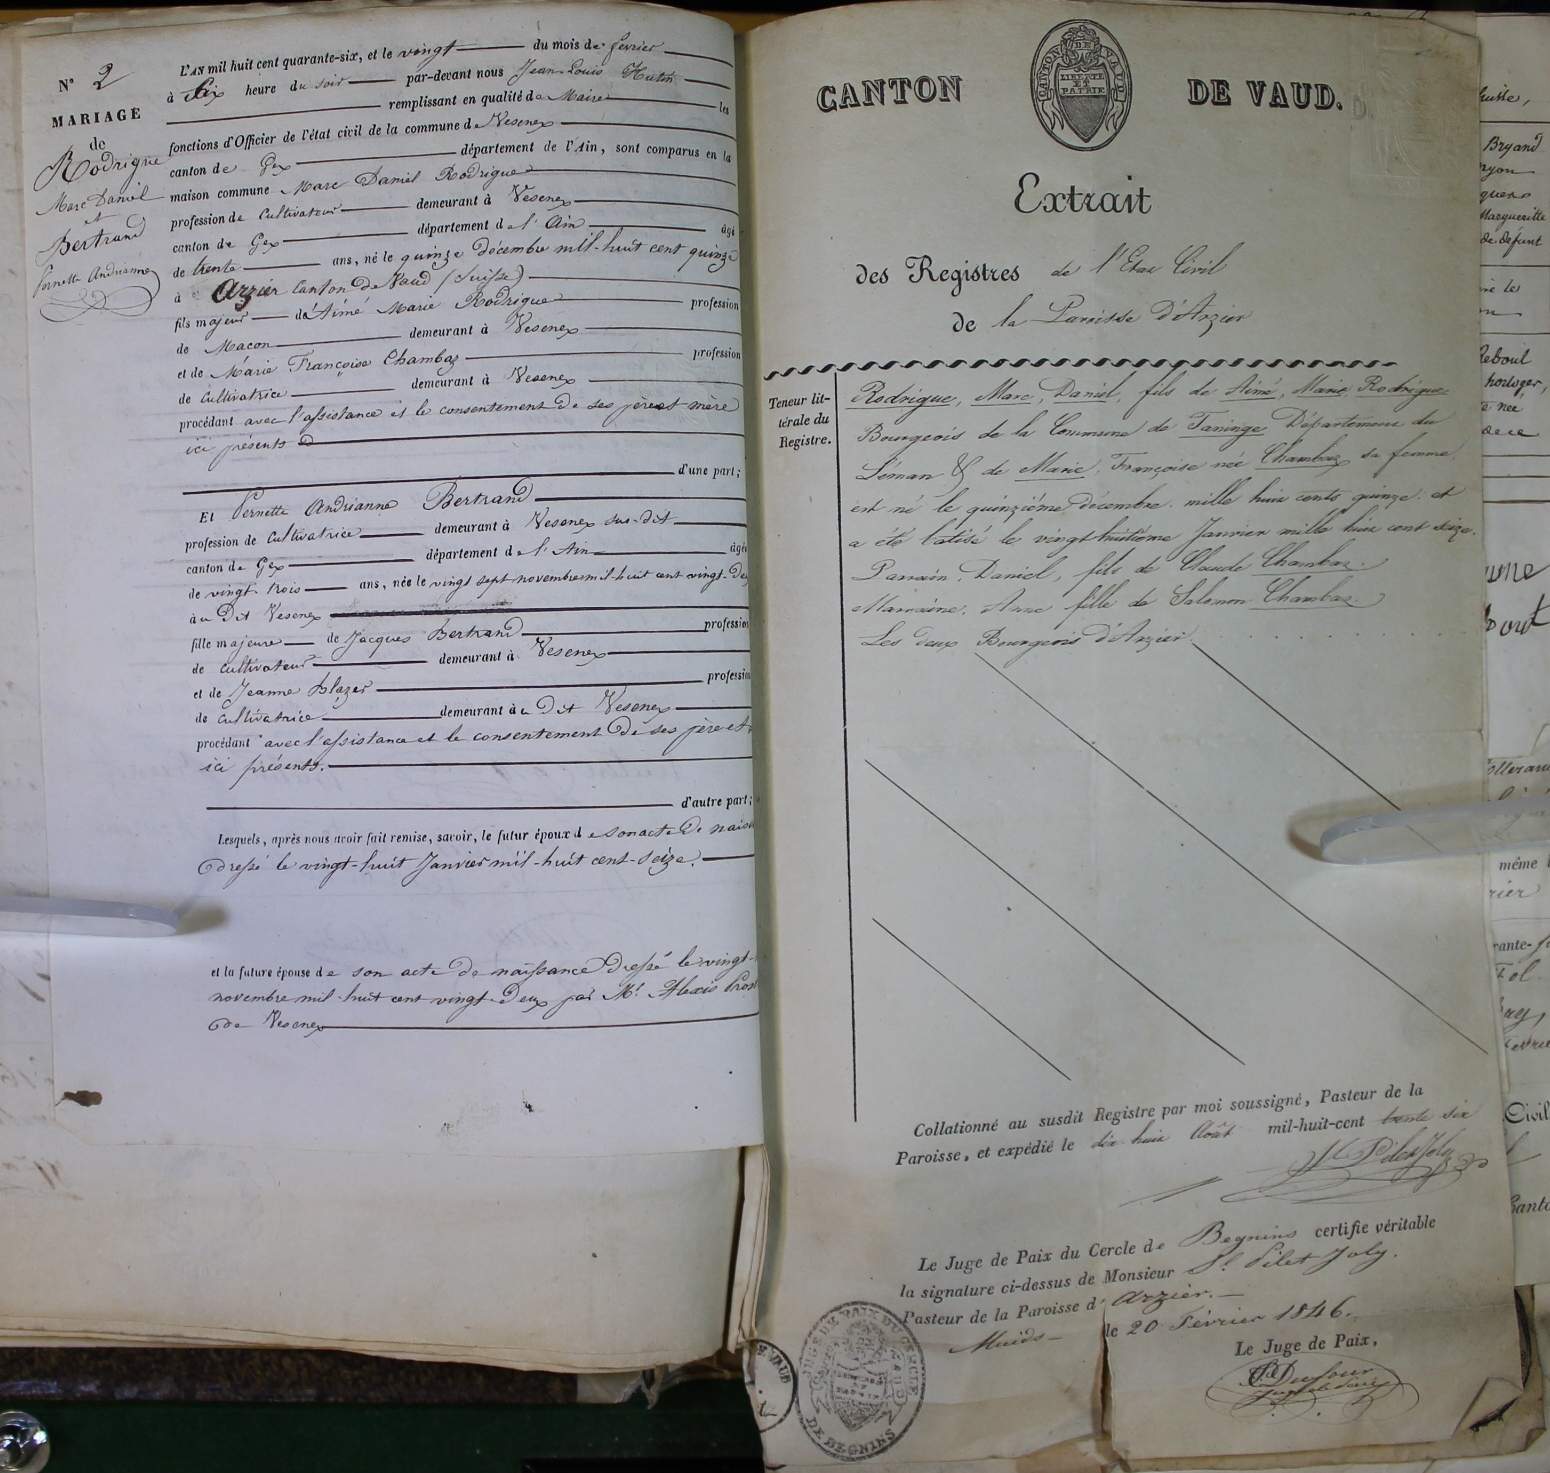 N° 2
MARIAGE
de
Rodrigue
Marc Daniel
et
Bertrand
Pernette Andrianne
L'AN mil huit cent quarante-six, et le vingt du mois de février
à Six heure du soir par-devant nous Jean-Louis
remplissant en qualité de Maire les
fonctions d'Officier de l'état civil de la commune de Vesenex
canton de Gex département de l'Ain, sont comparus en la
maison commune Marc Daniel Rodrigue
profession de cultivateur demeurant à Vesenex
canton de Gex département de l'Ain âgé
de trente ans, né le quinze décembre mil-huit cent quinze
à Arzier Canton de Vaud (Suisse)
fils majeur de Aimé Marie Rodrigue profession
de Macon demeurant à Vesenex
et de Marie Françoise Chambaz profession
de Cultivatrice demeurant à Vesenex
procédant avec l'assistance et le consentement de ses père et mère
ici présents
d'une part;
Et Pernette Andrianne Bertrand
profession de Cultivatrice demeurant à Vesenex sus-dit
canton de Gex département de l'Ain âgé
de vingt trois ans, née le vingt sept novembre mil-huit cent vingt-de
à u Dit Vesenex
fille majeure de Jacques Bertrand profession
de cultivateur demeurant à Vesenex
et de Jeanne profession
de cultivatrice demeurant à u Dit Vesenex
procédant avec l'assistance et le consentement de ses père et
ici présents.
d'autre part;
Lesquels, après nous avoir fait remise, savoir, le futur époux de son acte de naiss
dressé le vingt-huit Janvier mil-huit cent-seize.
et la future épouse de son acte de naissance dressé le vingt-
novembre mil-huit cent vingt-deux par Mr. Alexis
de Vesenex
CANTON DE VAUD.
CANTON DE VAUD
LIBERTÉ
ET
PATRIE
Extrait
des Registres de l'Etat Civil
de la Paroisse d'Arzier
Teneur lit-
térale du
Registre.
Rodrigue, Marc, Daniel, fils de Aimé, Marie, Rodrigue
Bourgeois de la Commune de Taninge Département du
Léman & de Marie, Françoise née Chambaz sa femme,
est né le quinzième décembre mille huit cents quinze, et
a été batisé le vingt huitième Janvier mille huit cent seize.
Parrain, Daniel, fils de Claude Chambaz.
Marraine, Anne fille de Salomon Chambaz.
Les deux Bourgeois d'Arzier.
Collationné au susdit Registre par moi soussigné, Pasteur de la
Paroisse, et expédié le dix huit Août mil-huit-cent trente six
Pilet Joly
Le Juge de Paix du Cercle de Begnins certifie véritable
la signature ci-dessus de Monsieur Sl. Pilet Joly.
Pasteur de la Paroisse d'Arzier.
Muids le 20 Février 1846.
Le Juge de Paix,
Dufour
JUGE DE PAIX DU CERCLE
DE BEGNINS
Bryand
Marguerite
de défunt
Reboul
horloger,
même
Civil